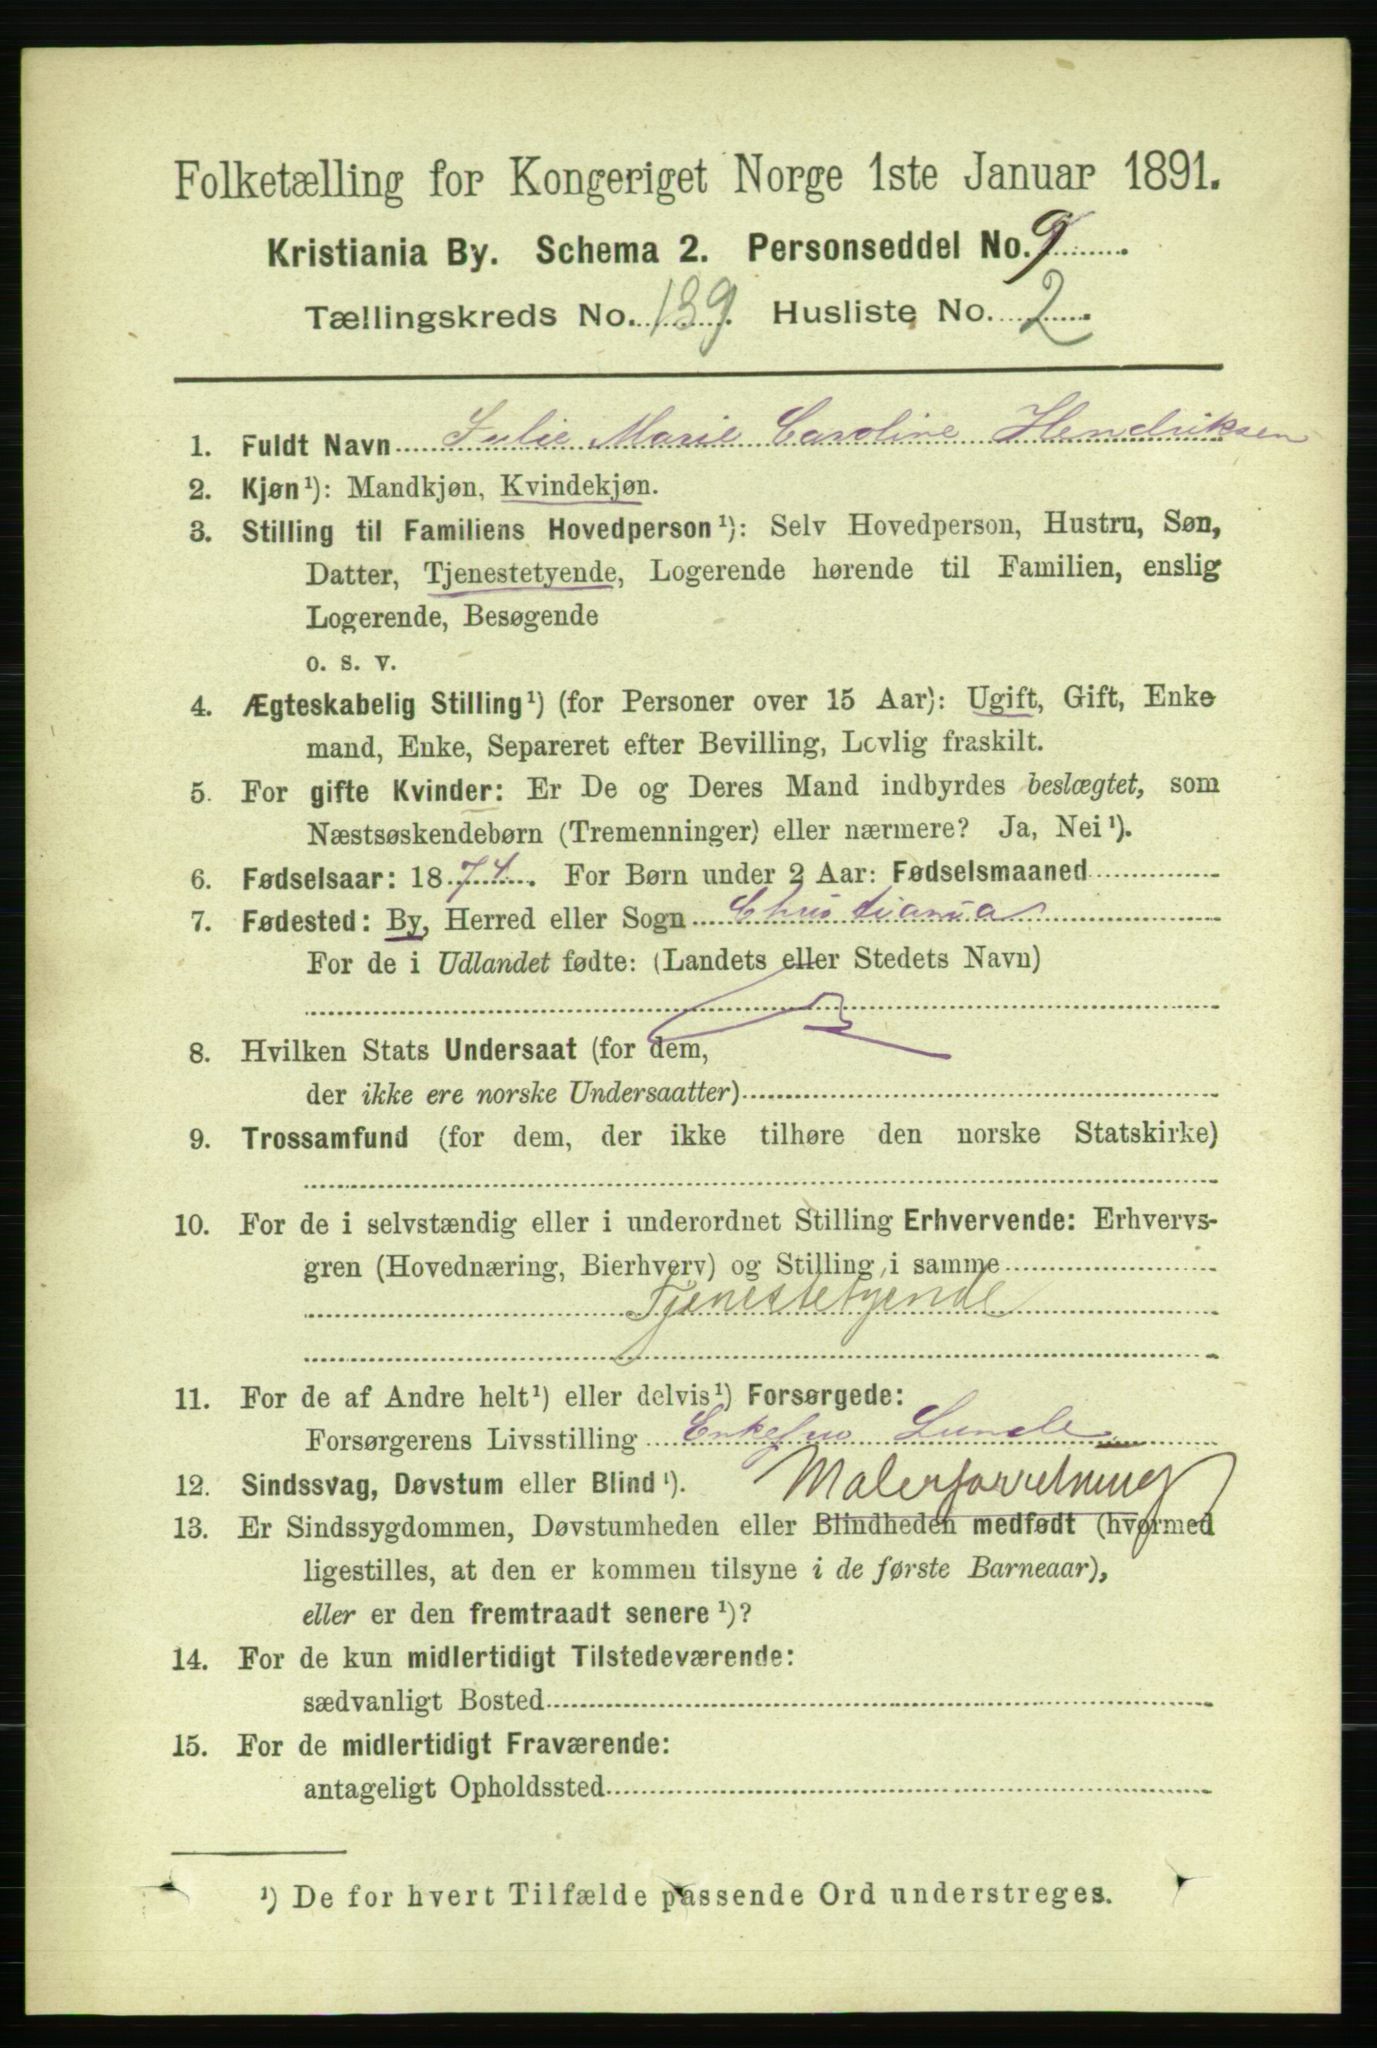 Folketælling for Kongeriget Norge 1ste Januar 1891.
Kristiania By. Schema 2. Personseddel No. 9
Tællingskreds No. 139. Husliste No. 2
1. Fuldt Navn Julie Marie Caroline Hendriksen
2. Kjøn¹): Mandkjøn, Kvindekjøn.
3. Stilling til Familiens Hovedperson¹): Selv Hovedperson, Hustru, Søn,
Datter, Tjenestetyende, Logerende hørende til Familien, enslig
Logerende, Besøgende
o. s. v.
4. Ægteskabelig Stilling¹) (for Personer over 15 Aar): Ugift, Gift, Enke
mand, Enke, Separeret efter Bevilling, Lovlig fraskilt.
5. For gifte Kvinder: Er De og Deres Mand indbyrdes beslægtet, som
Næstsøskendebørn (Tremenninger) eller nærmere? Ja, Nei¹).
6. Fødselsaar: 1874. For Børn under 2 Aar: Fødselsmaaned
7. Fødested: By, Herred eller Sogn Christiania
For de i Udlandet fødte: (Landets eller Stedets Navn)
8. Hvilken Stats Undersaat (for dem,
der ikke ere norske Undersaatter)
9. Trossamfund (for dem, der ikke tilhøre den norske Statskirke)
10. For de i selvstændig eller i underordnet Stilling Erhvervende: Erhvervs-
gren (Hovednæring, Bierhverv) og Stilling i samme
Tjenestetyende
11. For de af Andre helt¹) eller delvis¹) Forsørgede:
Forsørgerens Livsstilling Enkefru Lunde
12. Sindssvag, Døvstum eller Blind¹). Malerforretning
13. Er Sindssygdommen, Døvstumheden eller Blindheden medfødt (hvormed
ligestilles, at den er kommen tilsyne i de første Barneaar),
eller er den fremtraadt senere¹)?
14. For de kun midlertidigt Tilstedeværende:
sædvanligt Bosted
15. For de midlertidigt Fraværende:
antageligt Opholdssted
¹) De for hvert Tilfælde passende Ord understreges.